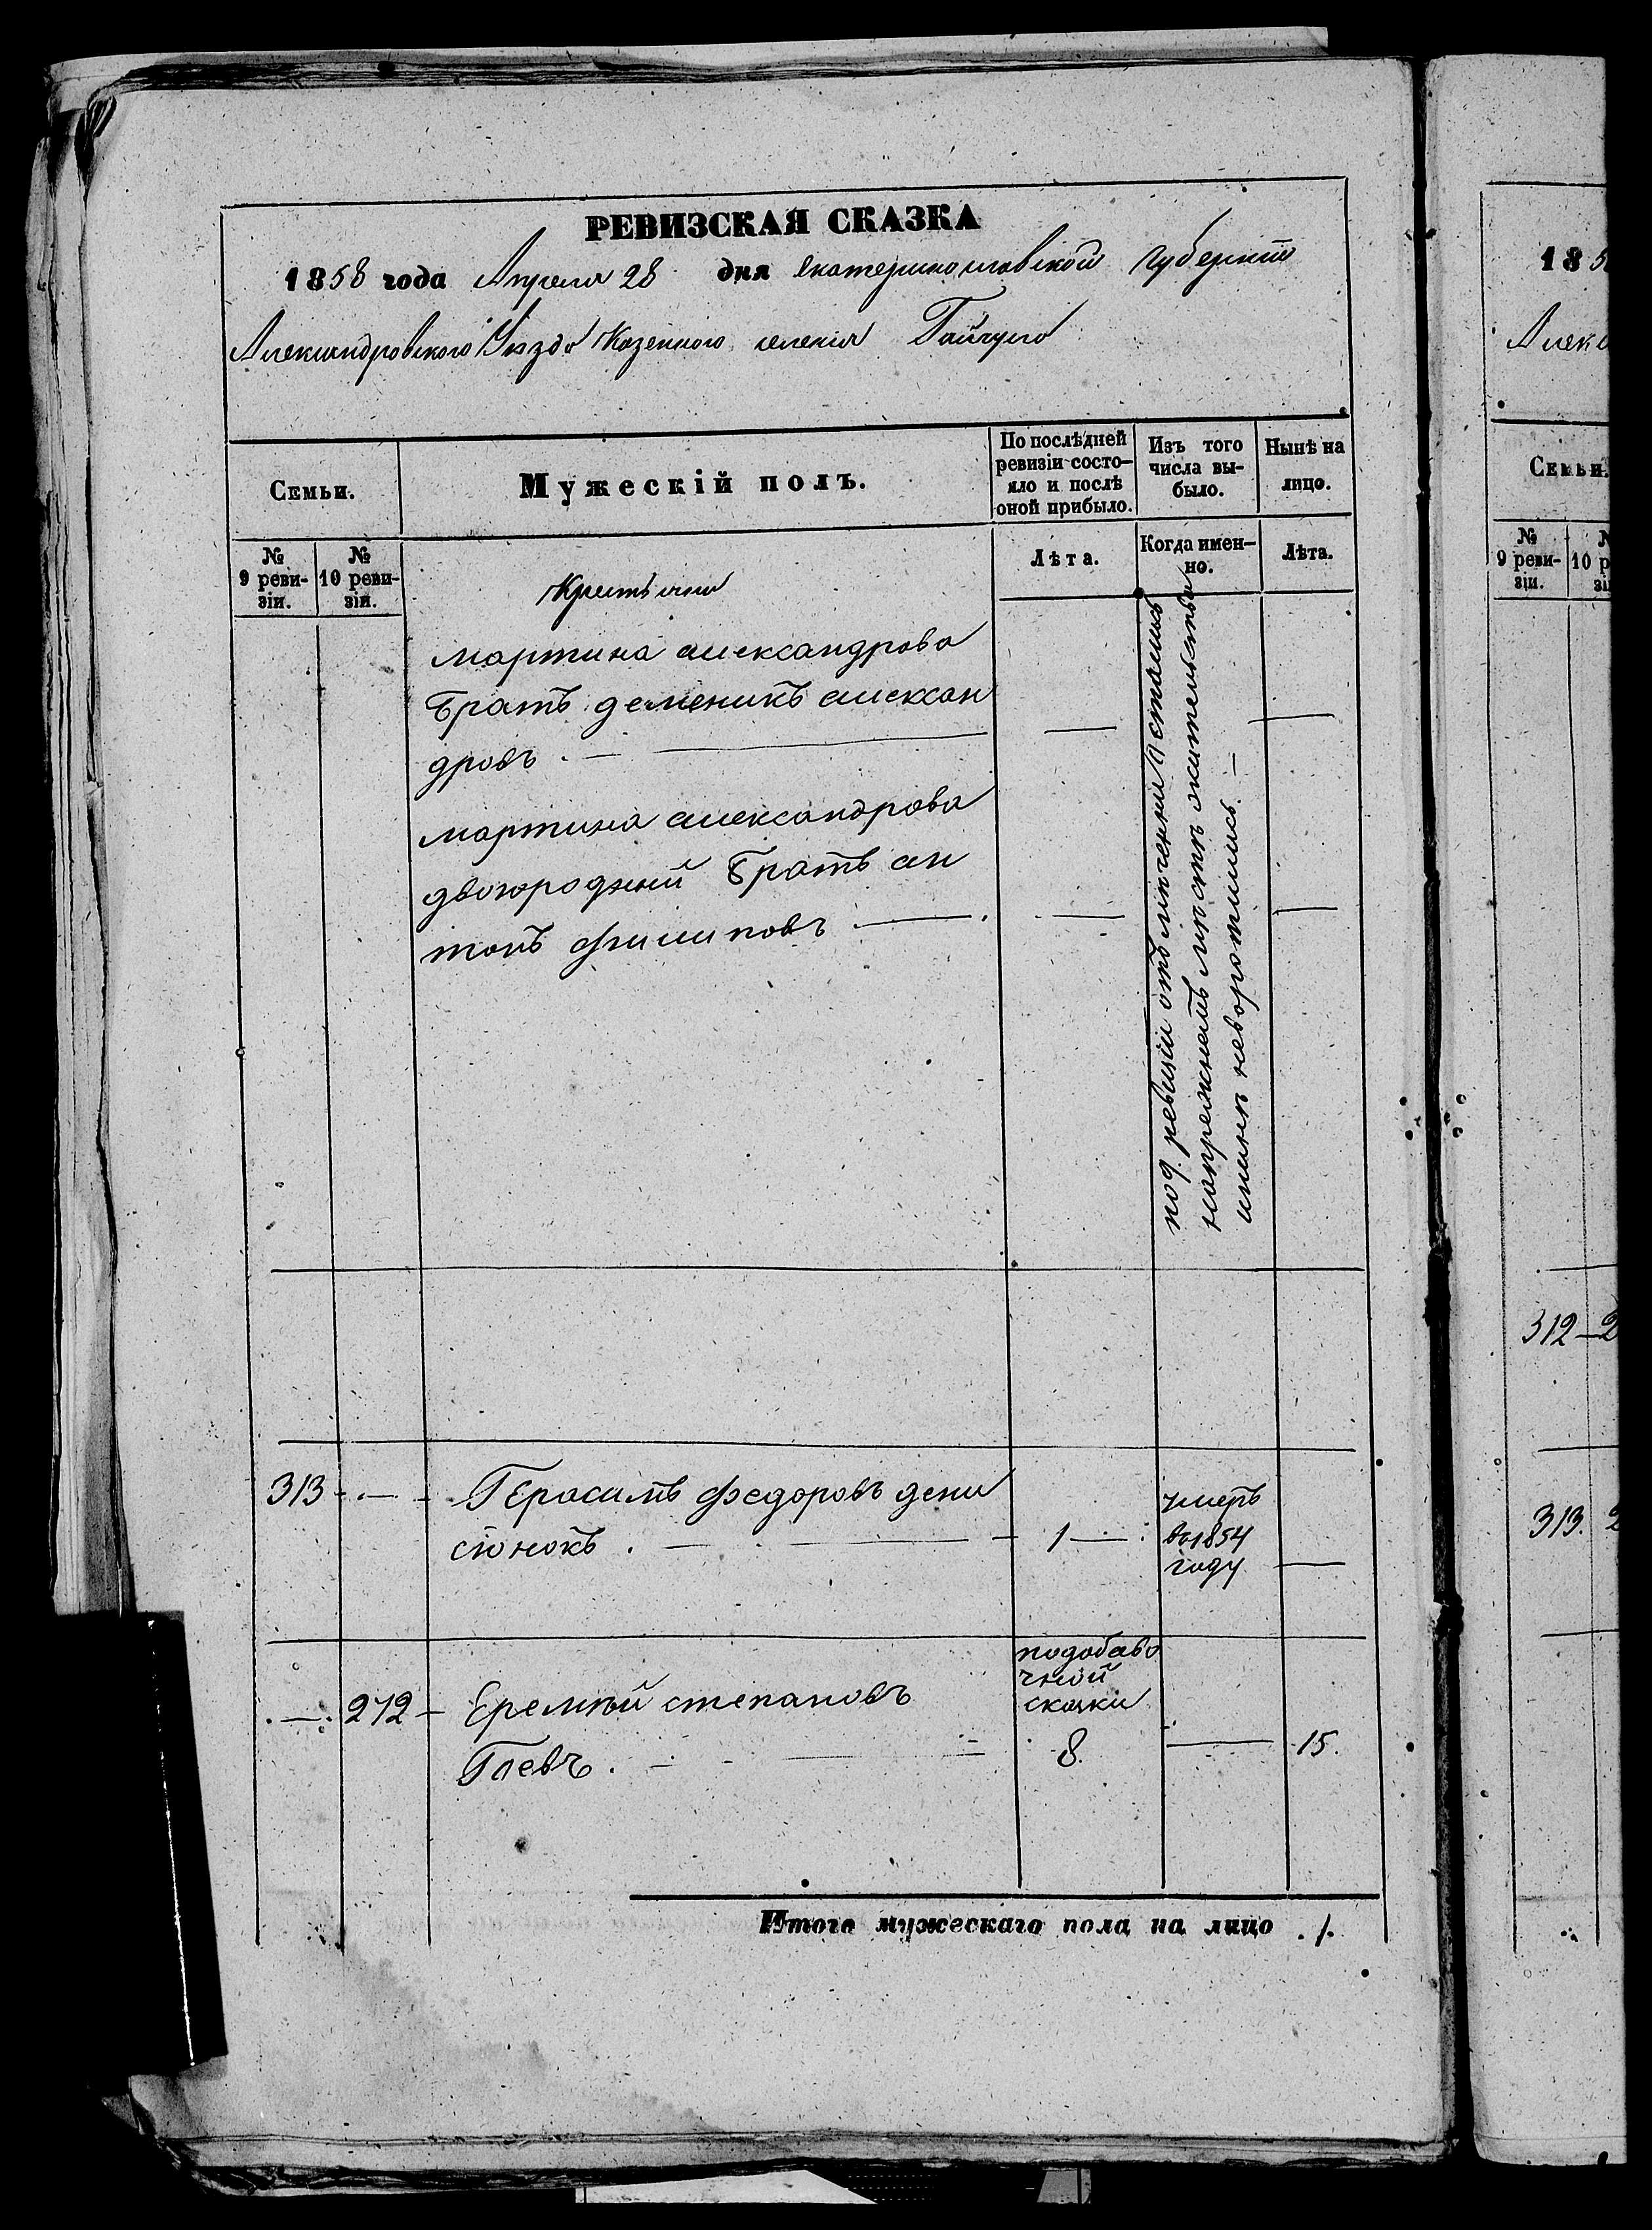 РЕВИЗСКАЯ СКАЗКА
1858 года Апреля 28 дня Екатеринославской Губернии
Александровского Уезда Казенного селения Гайчула
Семьи.
Мужескій полъ.
По послѣдней ревизіи состо-
яло и послѣ
оной прибыло.
Изъ того
числа вы-
было.
Нынѣ на
лицо.
№
9 реви-
зіи.
№
10 реви-
зіи.
Лѣта.
Когда имен-
но.
Лѣта.
Крестьяни
мартина александрова
братъ деменикъ алексан
дровъ . —
мартина александрова
двоюродний братъ ан
тонъ филиповъ —
под ревизіи отъмѣчении остались
напрежнемъ мѣстѣ жительства
инынѣ неворотились. —
313 - — - Герасимъ федоровъ дени
сюнокъ . — 1 —
умеръ
во1854
году —
— 272 - Еремѣй степановъ
Гаевъ . —
подобаво
чной
сказки
8. — 15.
Итого мужескаго пола на лицо . 1.
185
Алекс
Семьи.
№
9 реви-
зіи.
№
10 р
зі
312 - 2
313. 2